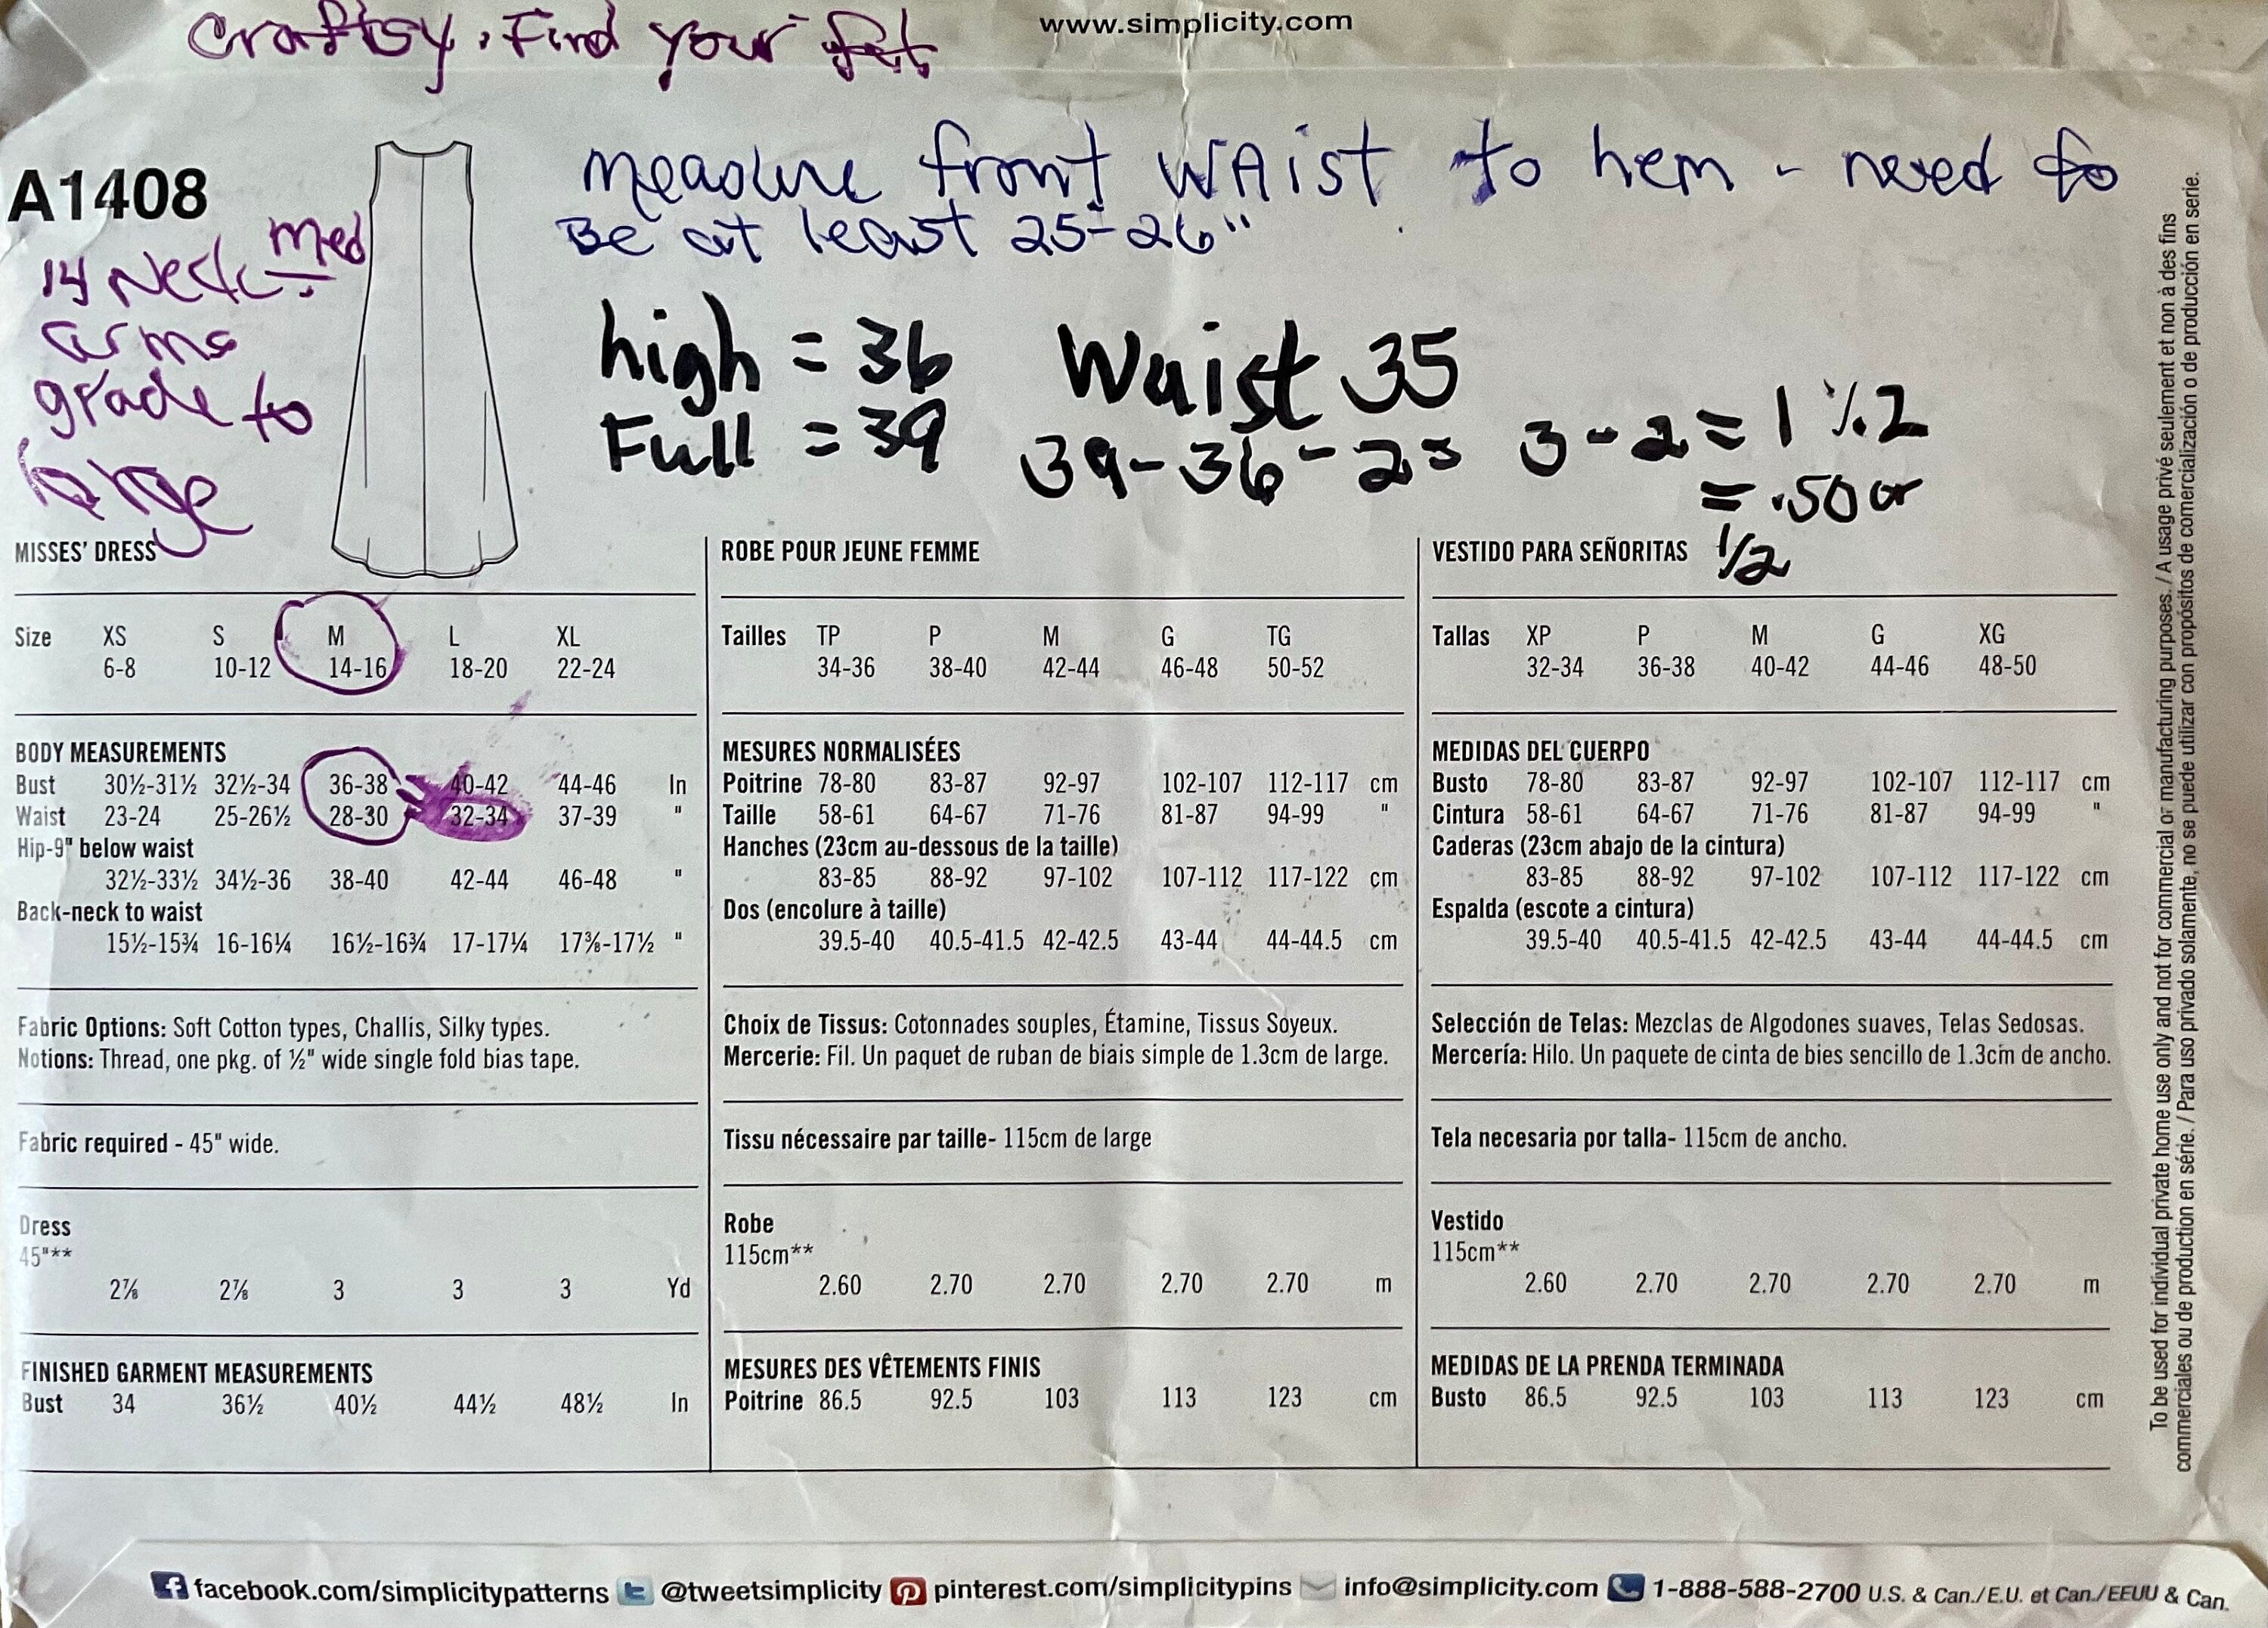 www.simplicity.com
Craftsy. Find your fit
measure front WAist to hem - need to
Be at least 25-26"
A1408
14 Neck - med
arms
grade to
large
high = 36
Full = 39
Waist 35
39-36-2=
3-2=1 ÷ 2
= .50 or
1/2
MISSES' DRESS
Size XS S M L XL
6-8 10-12 14-16 18-20 22-24
BODY MEASUREMENTS
Bust 30½-31½ 32½-34 36-38 40-42 44-46 In
Waist 23-24 25-26½ 28-30 32-34 37-39 "
Hip-9" below waist
32½-33½ 34½-36 38-40 42-44 46-48 "
Back-neck to waist
15½-15¾ 16-16¼ 16½-16¾ 17-17¼ 17⅜-17½ "
Fabric Options: Soft Cotton types, Challis, Silky types.
Notions: Thread, one pkg. of ½" wide single fold bias tape.
Fabric required - 45" wide.
Dress
45"**
2⅞ 2⅞ 3 3 3 Yd
FINISHED GARMENT MEASUREMENTS
Bust 34 36½ 40½ 44½ 48½ In
ROBE POUR JEUNE FEMME
Tailles TP P M G TG
34-36 38-40 42-44 46-48 50-52
MESURES NORMALISÉES
Poitrine 78-80 83-87 92-97 102-107 112-117 cm
Taille 58-61 64-67 71-76 81-87 94-99 "
Hanches (23cm au-dessous de la taille)
83-85 88-92 97-102 107-112 117-122 cm
Dos (encolure à taille)
39.5-40 40.5-41.5 42-42.5 43-44 44-44.5 cm
Choix de Tissus: Cotonnades souples, Étamine, Tissus Soyeux.
Mercerie: Fil. Un paquet de ruban de biais simple de 1.3cm de large.
Tissu nécessaire par taille- 115cm de large
Robe
115cm**
2.60 2.70 2.70 2.70 2.70 m
MESURES DES VÊTEMENTS FINIS
Poitrine 86.5 92.5 103 113 123 cm
VESTIDO PARA SEÑORITAS
Tallas XP P M G XG
32-34 36-38 40-42 44-46 48-50
MEDIDAS DEL CUERPO
Busto 78-80 83-87 92-97 102-107 112-117 cm
Cintura 58-61 64-67 71-76 81-87 94-99 "
Caderas (23cm abajo de la cintura)
83-85 88-92 97-102 107-112 117-122 cm
Espalda (escote a cintura)
39.5-40 40.5-41.5 42-42.5 43-44 44-44.5 cm
Selección de Telas: Mezclas de Algodones suaves, Telas Sedosas.
Mercería: Hilo. Un paquete de cinta de bies sencillo de 1.3cm de ancho.
Tela necesaria por talla- 115cm de ancho.
Vestido
115cm**
2.60 2.70 2.70 2.70 2.70 m
MEDIDAS DE LA PRENDA TERMINADA
Busto 86.5 92.5 103 113 123 cm
To be used for individual private home use only and not for commercial or manufacturing purposes. / A usage privé seulement et non à des fins
commerciales ou de production en série. / Para uso privado solamente, no se puede utilizar con propósitos de comercialización o de producción en serie.
facebook.com/simplicitypatterns @tweetsimplicity pinterest.com/simplicitypins info@simplicity.com 1-888-588-2700 U.S. & Can./E.U. et Can./EEUU & Can.